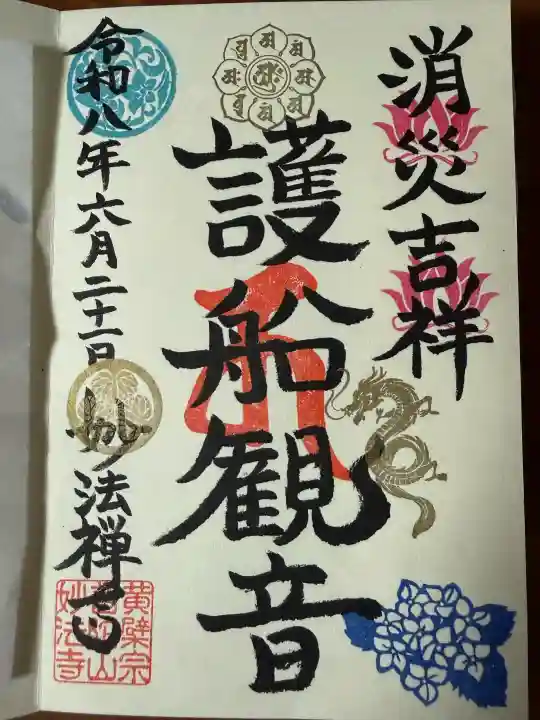 消災吉祥
護船観音
令和八年六月二十一日
妙法禅寺
黄檗宗
山
妙法寺